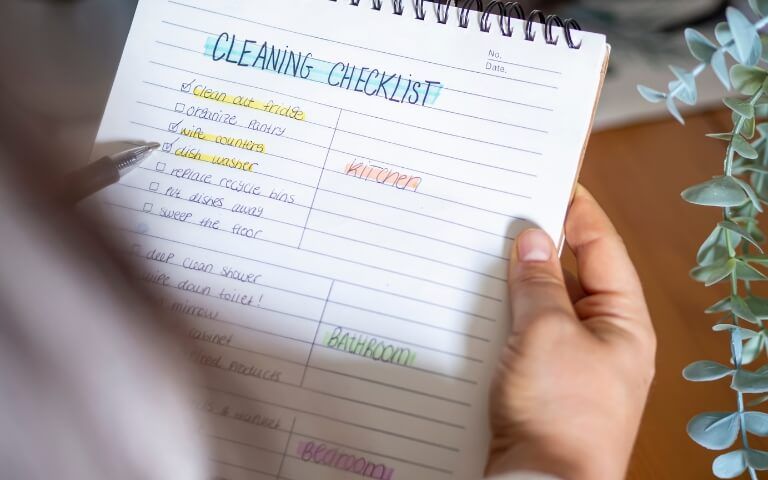 No.
Date.
CLEANiNG CHECKLiST
clean out fridge
organize pantry
wipe counters
dish washer
Kitchen
replace recycle bins
put dishes away
sweep the floor
deep clean shower
wipe down toilet!
mirrow
cabinet
BATHROOM
products
Bedroom